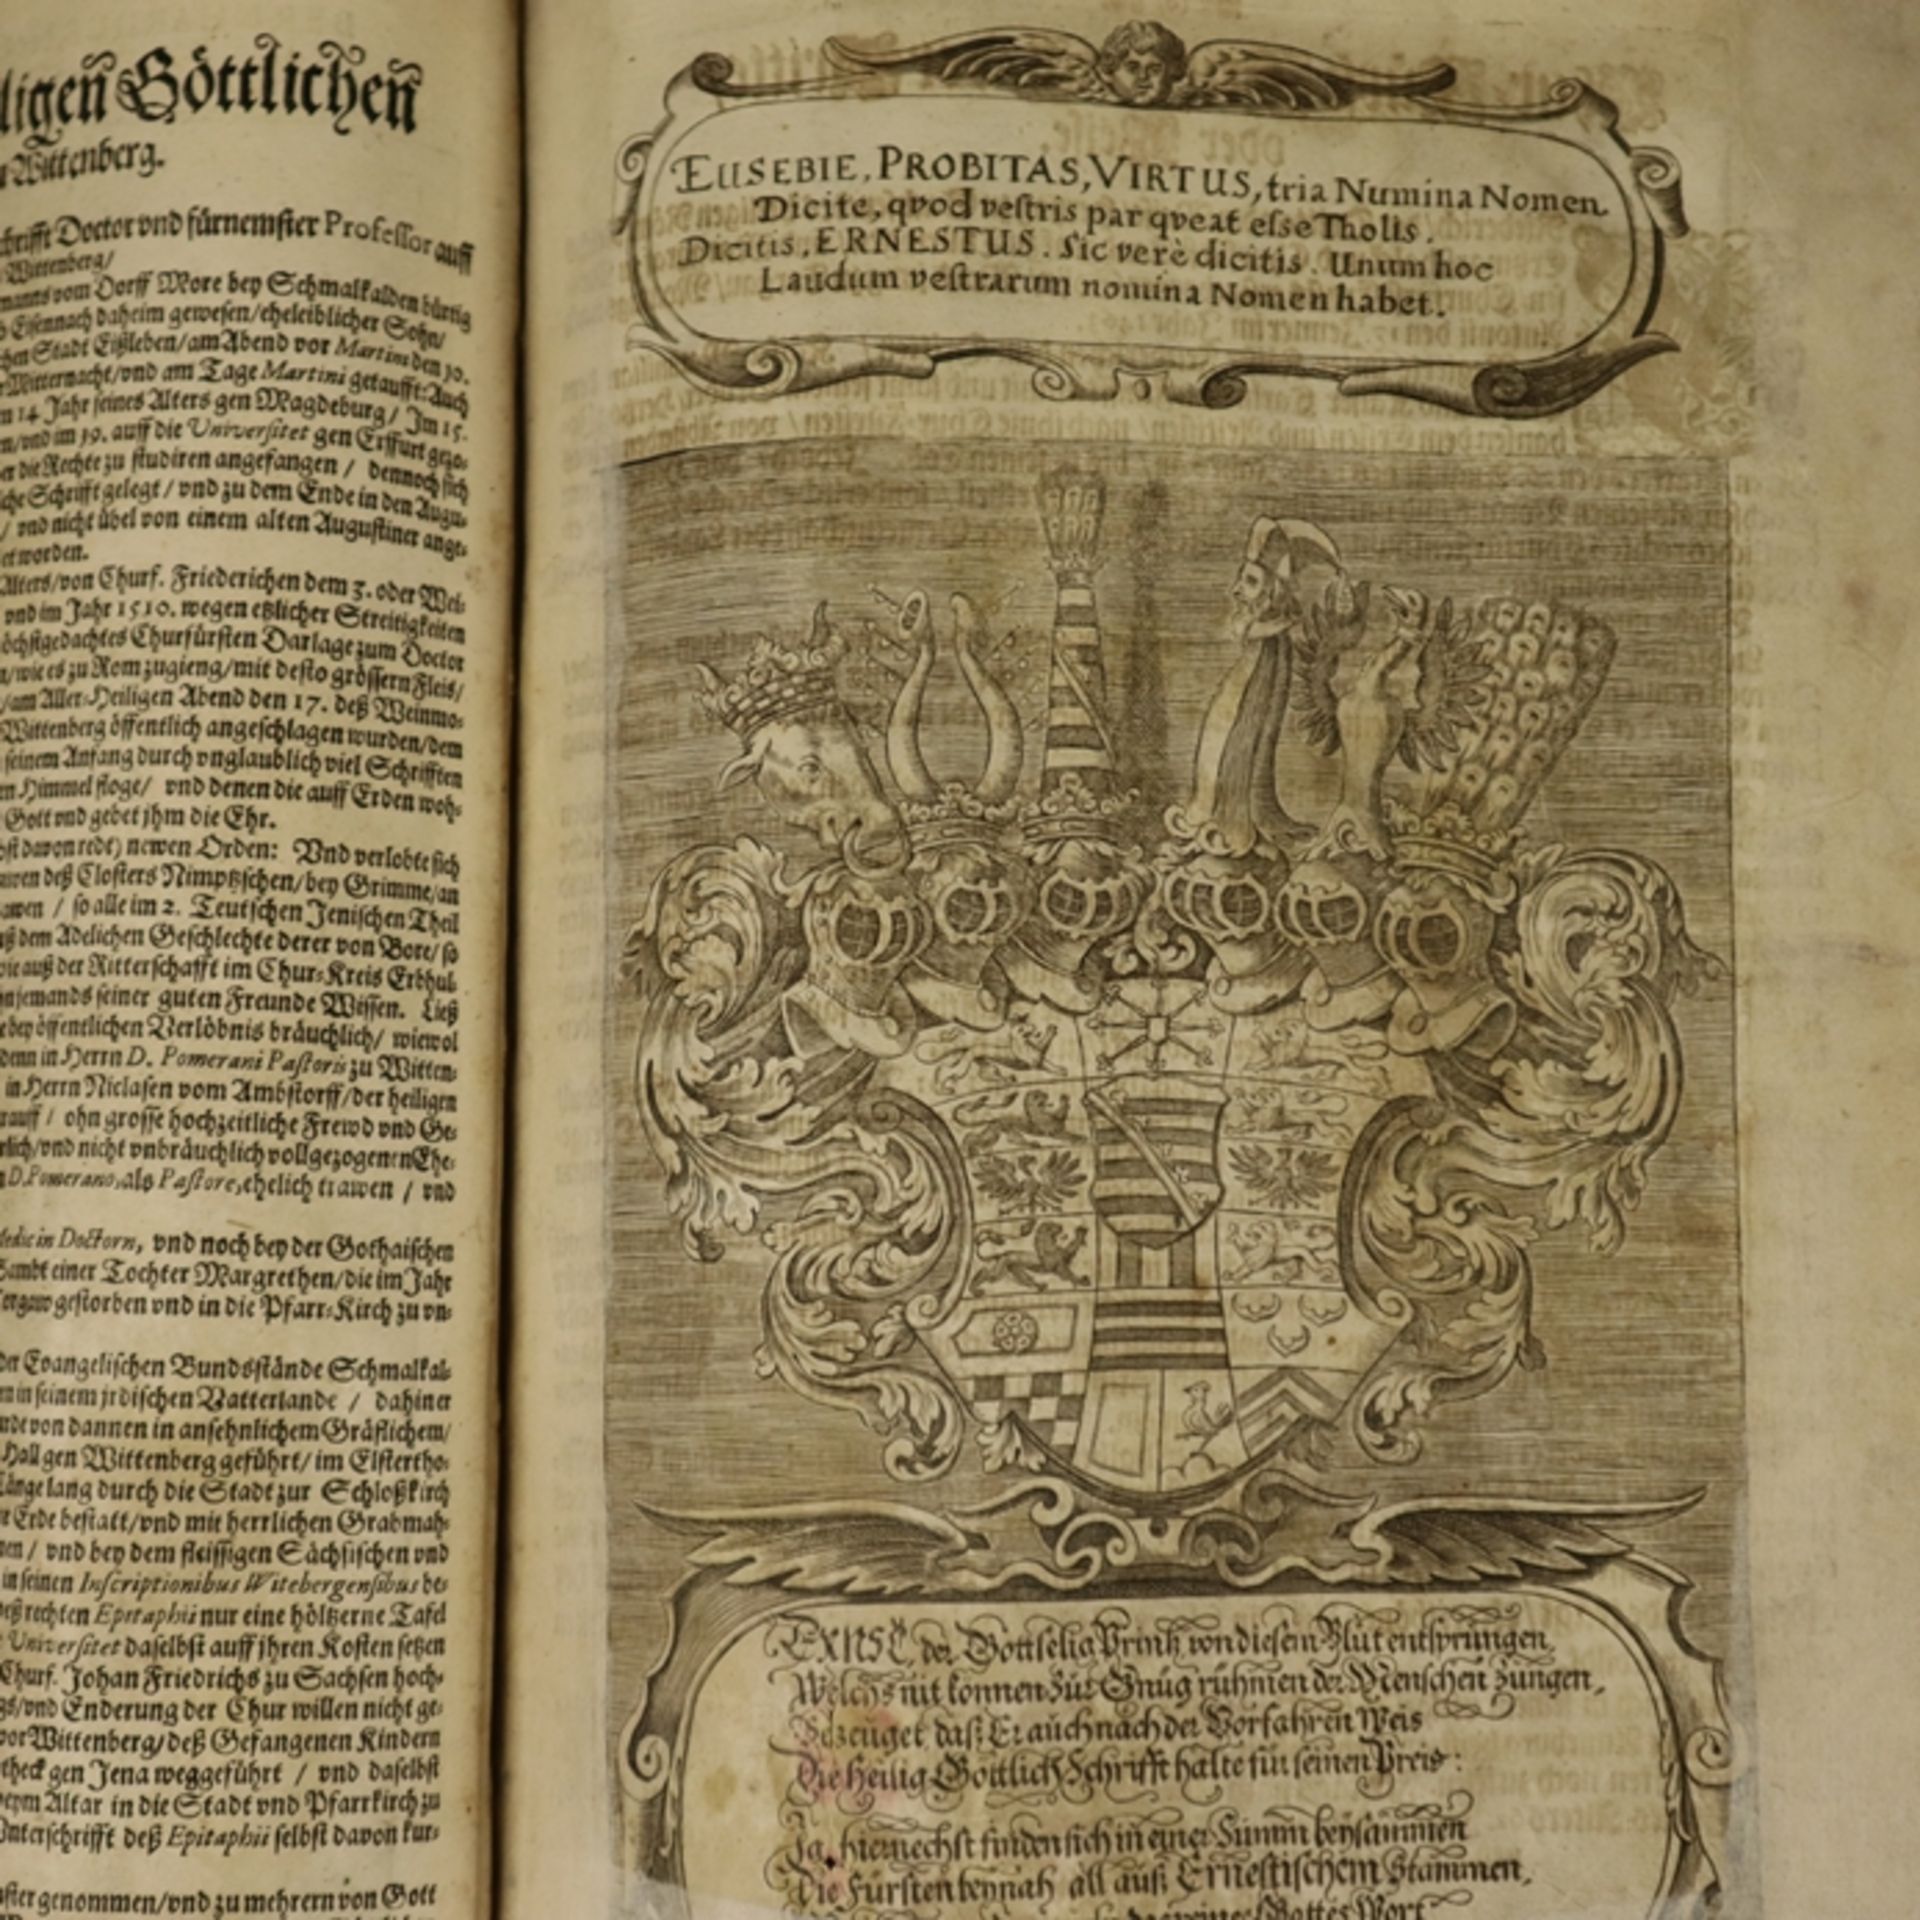 ligen Göttlichen
Wittenberg.
Doctor vnd fürnemster Professor auff
Wittenberg/
vom Dorff More bey Schmalkalden bürtig
Eisennach daheim gewesen/eheleiblicher Sohn/
Stadt Eißleben/am Abend vor Martini den 10.
Mitternacht/vnd am Tage Martini getaufft: Auch
14. Jahr seines Alters gen Magdeburg/ Im 15.
vnd im 19. auff die Universitet gen Erffurt gezo-
die Rechte zu studiren angefangen / dennoch sich
Schrifft gelegt / vnd zu dem Ende in den Augu-
/ vnd nicht übel von einem alten Augustiner ange-
worden.
Alters/von Churf. Friederichen dem 3. oder Wei-
vnd im Jahr 1510. wegen etzlicher Streitigkeiten
Churfürsten Darlage zum Doctor
wie es zu Rom zugieng/mit desto grössern Fleis/
/am Aller-Heiligen Abend den 17. deß Weinmo-
Wittenberg öffentlich angeschlagen wurden/dem
seinem Anfang durch vnglaublich viel Schrifften
Himmel floge/ vnd denen die auff Erden woh-
Gott vnd gebet jhm die Ehr.
davon redt) newen Orden: Vnd verlobte sich
deß Closters Nimptzschen/bey Grimme/an
/ so alle im 2. Teutschen Jenischen Theil
dem Adelichen Geschlechte derer von Bore/ so
auß der Ritterschafft im Chur-Kreis Erbhul-
jemands seiner guten Freunde Wissen. Ließ
bey öffentlichen Verlöbnis bräuchlich/ wiewol
denn in Herrn D. Pomerani Pastoris zu Witten-
in Herrn Niclasen vom Ambstorff/der heiligen
/ ohn grosse hochzeitliche Frewd vnd Ge-
vnd nicht vnbräuchlich vollgezogenen Ehe-
D. Pomerano, als Pastore, ehelich trawen / vnd
Doctorn, vnd noch bey der Gothaischen
Sambt einer Tochter Margrethen/die im Jahr
gestorben vnd in die Pfarr-Kirch zu vn-
der Evangelischen Bundsstände Schmalkal-
in seinem jrdischen Vatterlande / dahin er
von dannen in ansehnlichem Gräflichem/
Hall gen Wittenberg geführt/ im Elstertho-
lang durch die Stadt zur Schloßkirch
Erde bestatt/vnd mit herrlichen Grabmah-
/ vnd bey dem fleissigen Sächsischen vnd
in seinen Inscriptionibus Witebergensibus be-
rechten Epitaphii nur eine höltzerne Tafel
Universitet daselbst auff jhren Kosten setzen
Churf. Johan Friedrichs zu Sachsen hoch-
vnd Enderung der Chur willen nicht ge-
vor Wittenberg/deß Gefangenen Kindern
gen Jena weggeführt / vnd daselbst
Altar in die Stadt vnd Pfarrkirch zu
Unterschrifft deß Epitaphii selbst davon kur-
genommen/vnd zu mehrern von Gott
EUSEBIE, PROBITAS, VIRTUS, tria Numina Nomen
Dicite, qvod vestris par qveat esse Tholis.
Dicitis, ERNESTUS. Sic verè dicitis. Unum hoc
Laudum vestrarum nomina Nomen habet.
ERNST, der Gottselig Printz von diesem Blut entsprungen,
Welchs nit konnen zur Gnüg rühmen der Menschen Zungen,
Bezeuget, daß Er auch nach der Vorfahren Weis
Die Heilig Göttlich Schrifft halte für seinen Preis:
Ja, hiernechst finden sich in einer Summ beysammen
Die Fürsten beynah all auß Ernestischem Stammen,